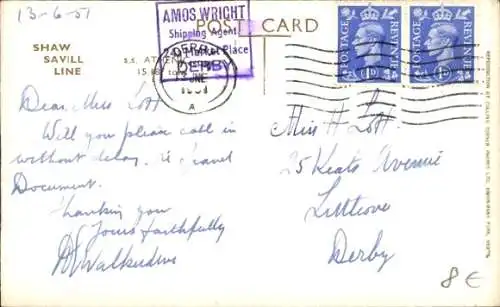 13-6-51
AMOS WRIGHT
Shipping Agent
Market Place
DERBY
POST CARD
SHAW
SAVILL
LINE
S.S. ATHENIC
DERBY
JNE
1951
A
POSTAGE REVENUE
1D
POSTAGE REVENUE
1D
Dear Miss Lott
Will you please call in
without delay. re Travel
Document.
Thanking you
Yours faithfully
Miss H Lott
25 Keats Avenue
Littleover
Derby
8€